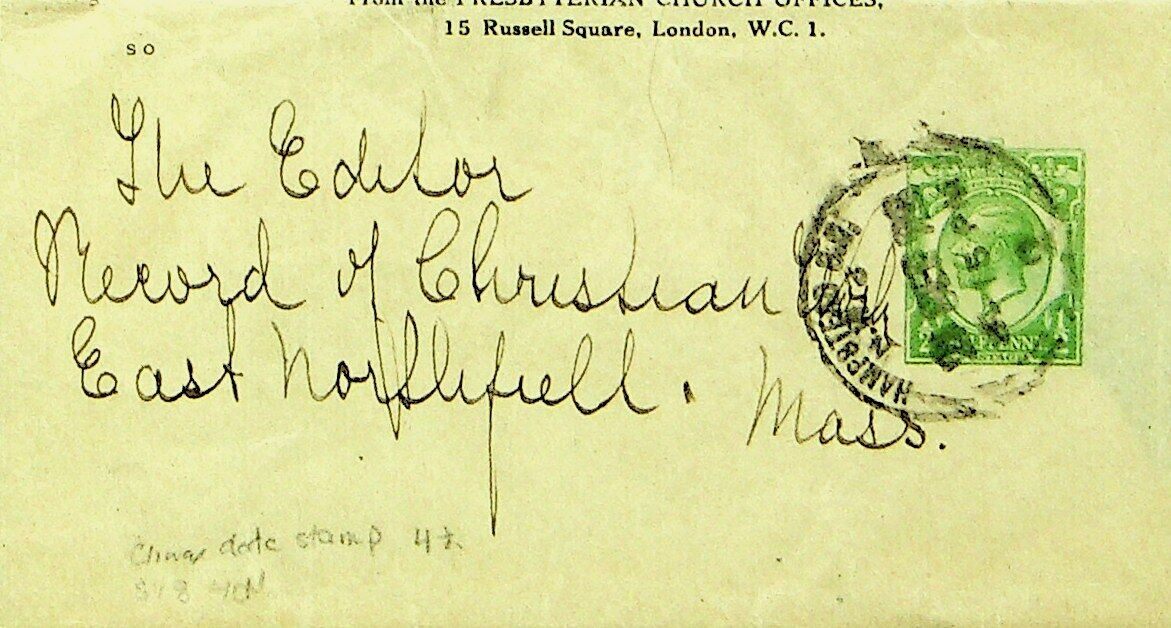 From the PRESBYTERIAN CHURCH OFFICES,
15 Russell Square, London, W.C. 1.
SO
The Editor
Record of Christian
East Northfield. Mass.
HAMPSTEAD
date stamp